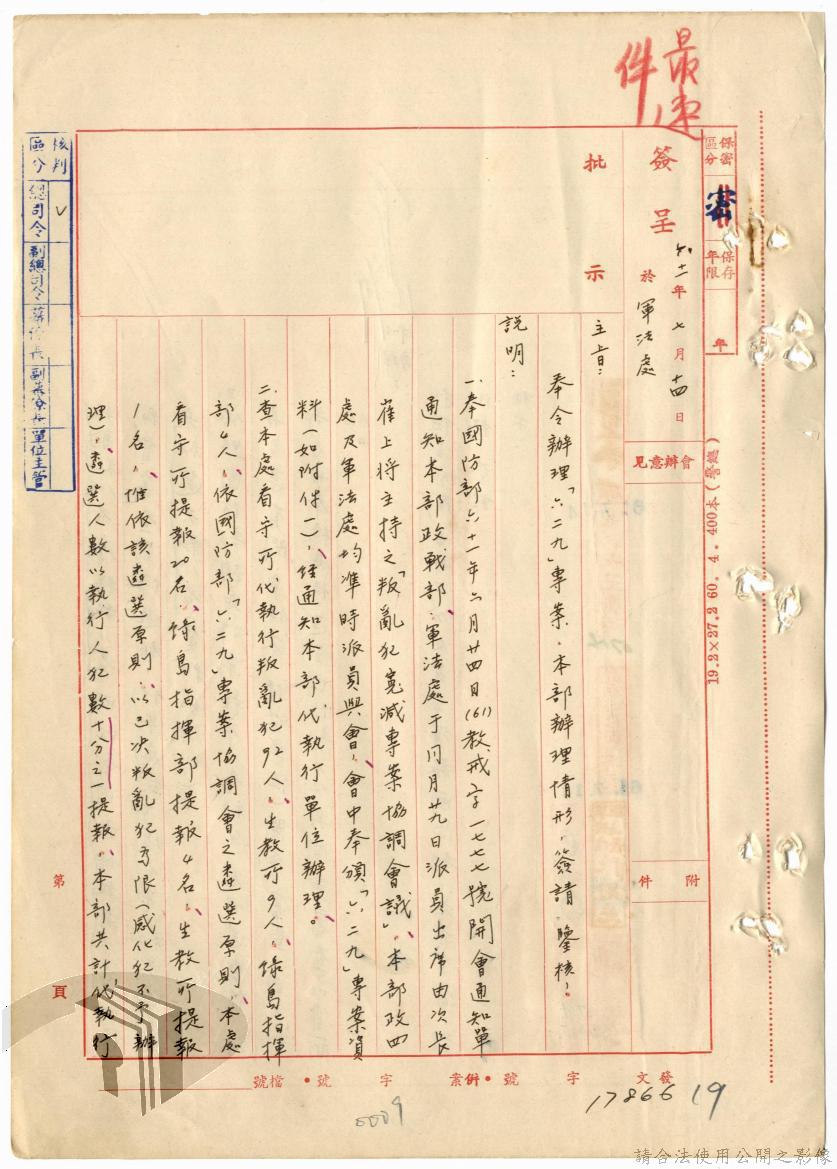 最速件
保密區分
密
保存年限
年
簽呈
六十一年七月十四日
於軍法處
會辦意見
附件
批示
主旨：
奉令辦理「六二九」專案，本部辦理情形，簽請 鑒核！
說明：
一、奉國防部六十一年六月廿四日(61)教戒字一七七七號開會通知單
通知本部政戰部、軍法處于同月廿九日派員出席由次長
崔上將主持之「叛亂犯寬減專案協調會議」，本部政四
處及軍法處均準時派員與會，會中奉頒「六二九」專案資
料（如附件一），經通知本部代執行單位辦理。
二、查本處看守所代執行叛亂犯92人，生教所9人，綠島指揮
部4人，依國防部「六二九」專案協調會之遴選原則，本處
看守所提報20名，綠島指揮部提報4名，生教所提報
1名，惟依該遴選原則，以已決叛亂犯為限（感化犯不予辦
理），遴選人數以執行人犯數十分之一提報，本部共計代執行
核判區分
總司令
副總司令
參謀長
副參謀長
單位主管
第
頁
19.2×27.2 60. 4. 400本(警總)
發文
字
號•併案
字
號•檔號
17866
19
0009
請合法使用公開之影像